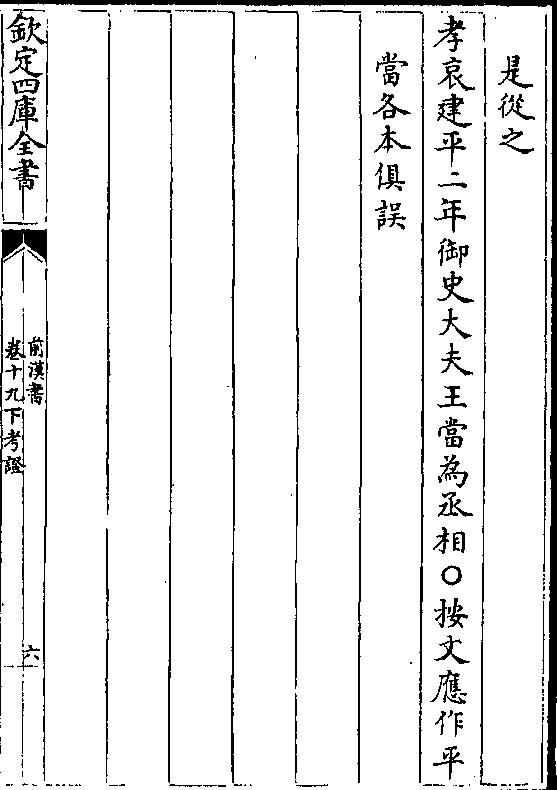 是從之
孝哀建平二年御史大夫王當為丞相○按文應作平
當各本俱誤
欽定四庫全書
前漢書
卷十九下考證
六